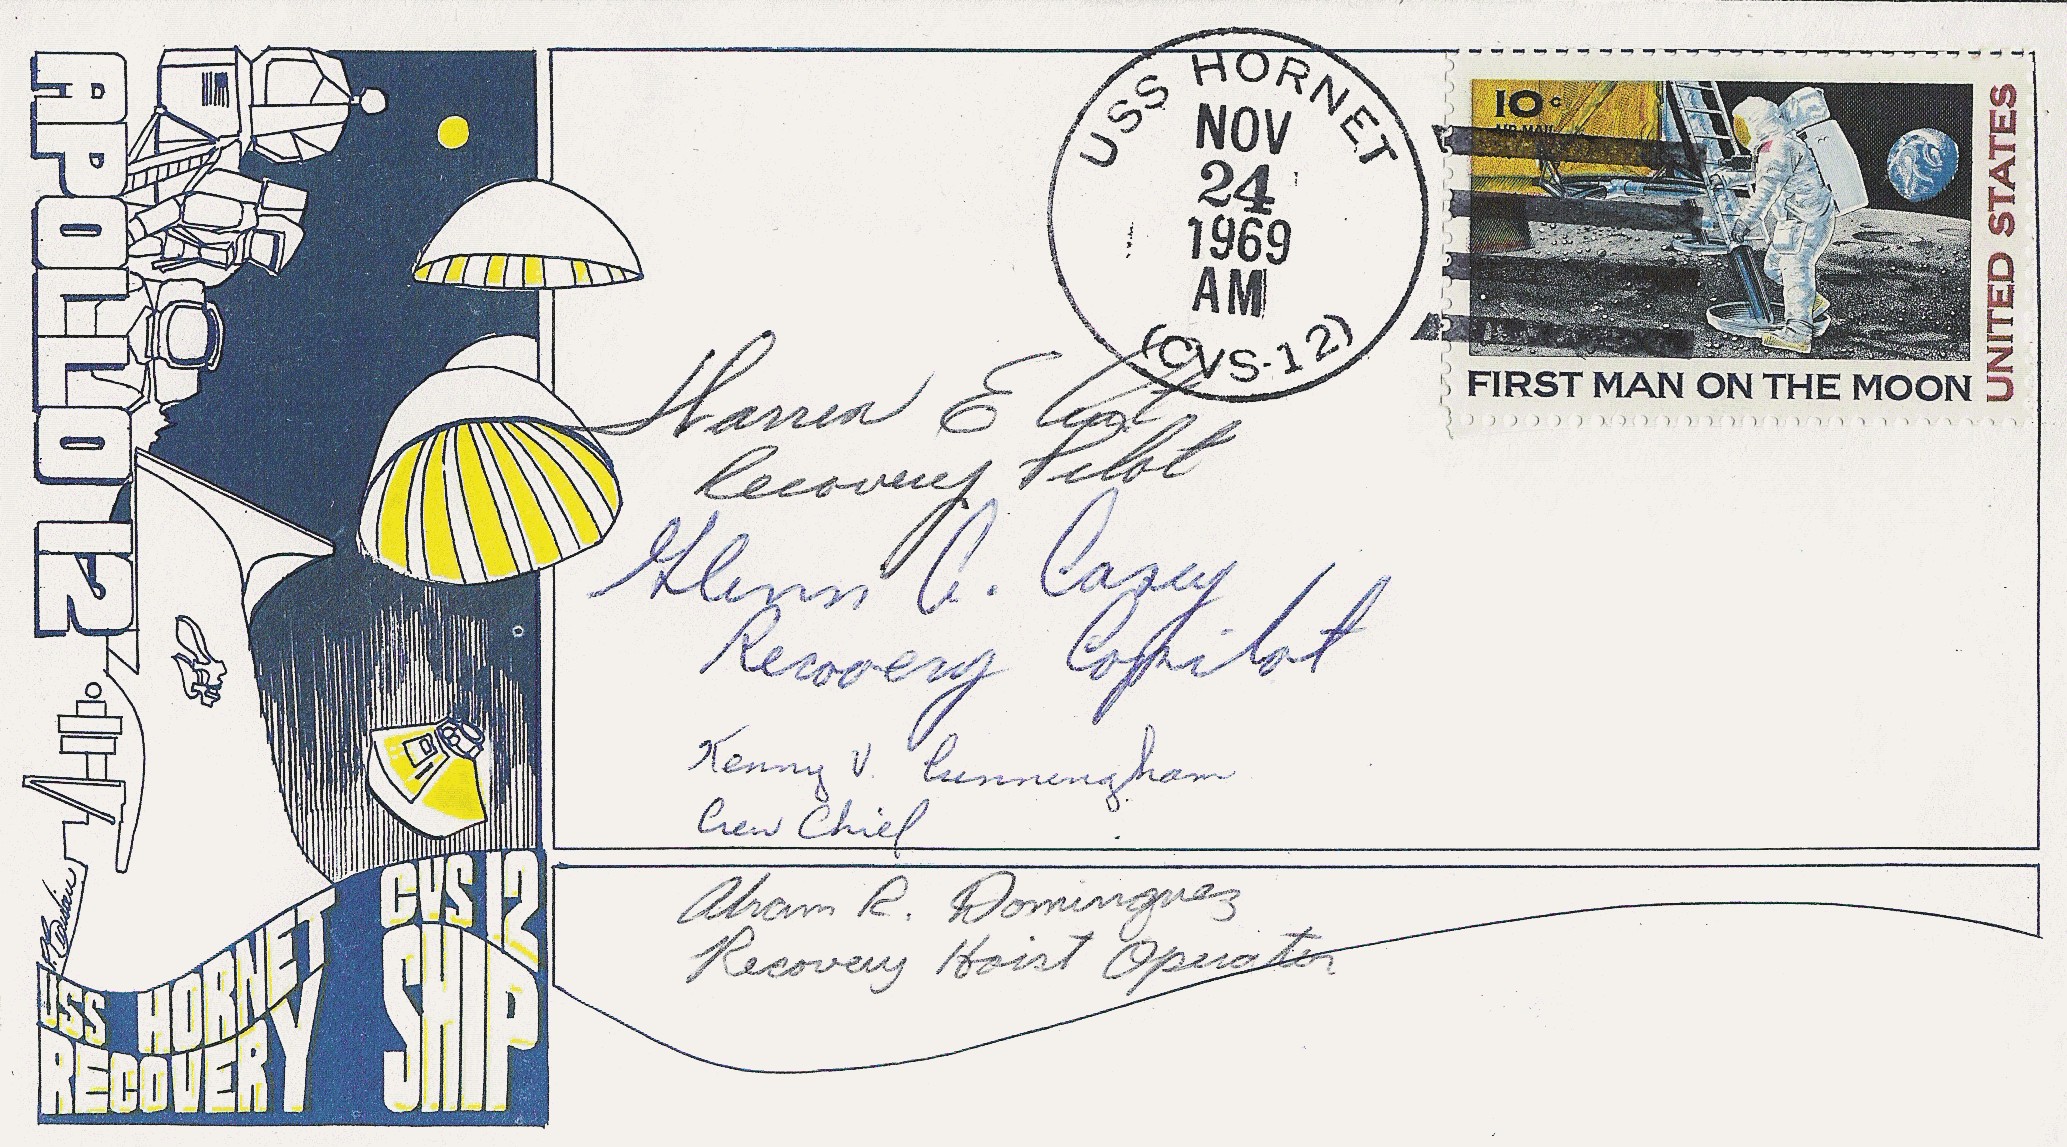 APOLLO 12
USS HORNET
NOV
24
1969
AM
(CVS-12)
10c
AIR MAIL
UNITED STATES
FIRST MAN ON THE MOON
Warren E
Recovery Pilot
Glenn A. Casey
Recovery Copilot
Kenny V. Cunningham
Crew Chief
Abram R. Dominguez
Recovery Hoist Operator
USS HORNET CVS 12
RECOVERY SHIP